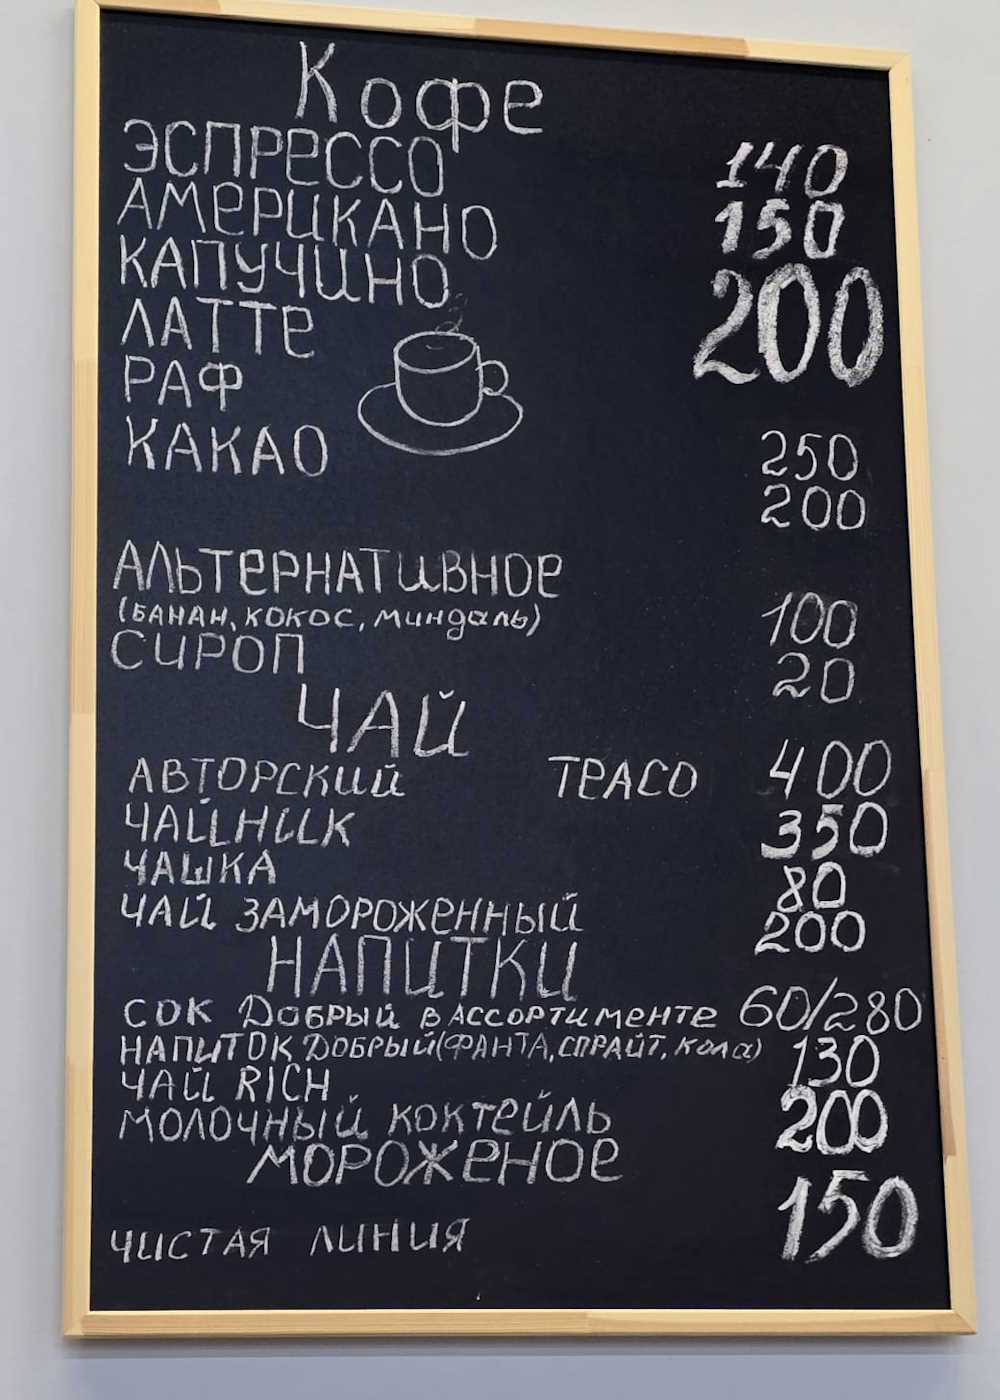 Кофе
ЭСПРЕССО 140
АМЕРИКАНО 150
КАПУЧИНО 200
ЛАТТЕ
РАФ
КАКАО 250
200
АЛЬТЕРНАТИВНОЕ
(БАНАН, КОКОС, МИНДАЛЬ) 100
СИРОП 20
ЧАЙ
АВТОРСКИЙ TEACO 400
ЧАЙНИК 350
ЧАШКА 80
ЧАЙ ЗАМОРОЖЕННЫЙ 200
НАПИТКИ
СОК ДОБРЫЙ В АССОРТИМЕНТЕ 60/280
НАПИТОК ДОБРЫЙ (ФАНТА, СПРАЙТ, КОЛА) 130
ЧАЙ RICH
МОЛОЧНЫЙ КОКТЕЙЛЬ 200
МОРОЖЕНОЕ
ЧИСТАЯ ЛИНИЯ 150